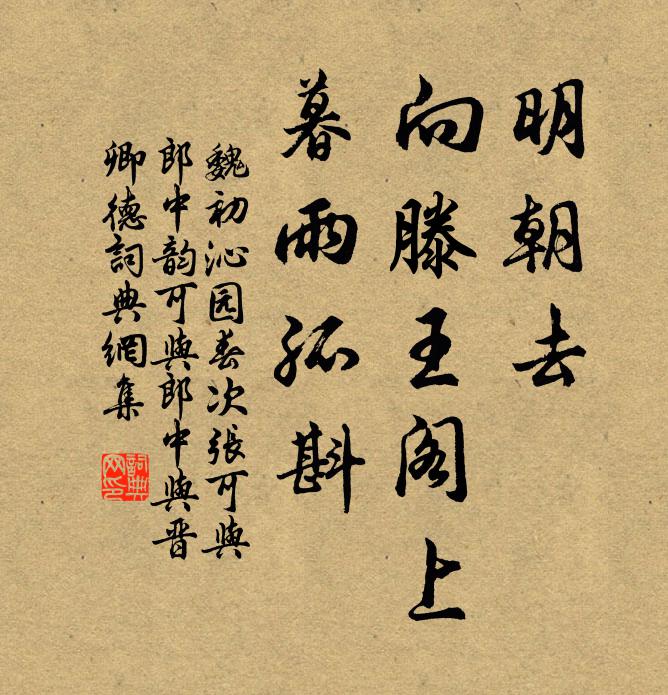 明朝去
向滕王阁上
暮雨孤斟
魏初沁园春次張可與
郎中韵可與郎中與晋
卿德詞典網集
詞典网印